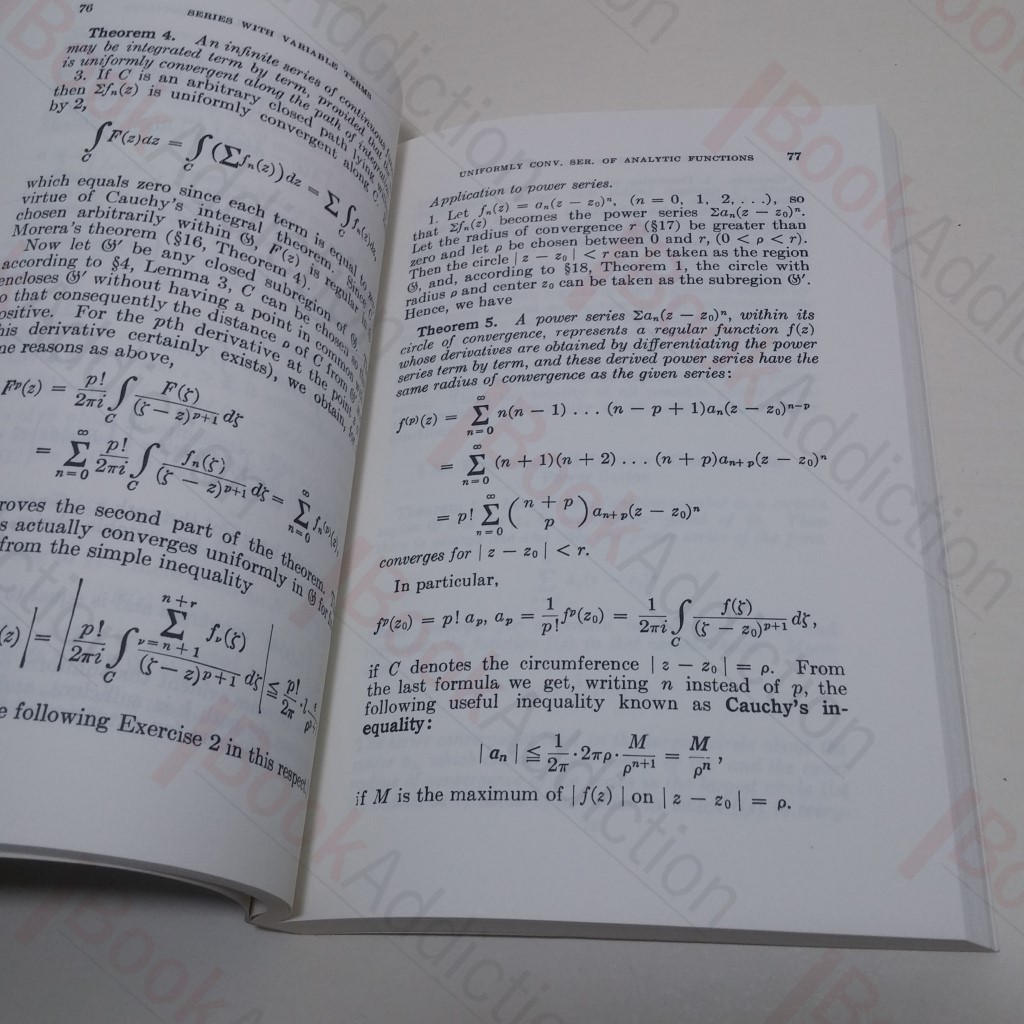 76
SERIES WITH VARIABLE TERMS
Theorem 4. An infinite series of continuous
may be integrated term by term, provided that the
is uniformly convergent along the path of
3. If C is an arbitrary closed path lying
then Σfₙ(z) is uniformly convergent along C
by 2,
∫_C F(z)dz = ∫_C (Σfₙ(z)) dz = Σ ∫ fₙ(z)dz,
which equals zero since each term is equal to
virtue of Cauchy's integral theorem. Since
chosen arbitrarily within 𝔊, F(z) is regular in
Morera's theorem (§16, Theorem 4).
Now let 𝔊′ be any closed subregion of 𝔊.
according to §4, Lemma 3, C can be chosen so
encloses 𝔊′ without having a point in common
o that consequently the distance ρ of C from 𝔊′
ositive. For the pth derivative at the point
his derivative certainly exists), we obtain, for
ne reasons as above,
Fᵖ(z) = p!/2πi ∫_C F(ζ)/(ζ − z)ᵖ⁺¹ dζ
= Σ_{n=0}^∞ p!/2πi ∫_C fₙ(ζ)/(ζ − z)ᵖ⁺¹ dζ = Σ_{n=0}^∞ fₙ⁽ᵖ⁾(z),
roves the second part of the theorem.
s actually converges uniformly in 𝔊′ for
from the simple inequality
(z)| = |p!/2πi ∫_C Σ_{ν=n+1}^{n+r} fν(ζ)/(ζ − z)ᵖ⁺¹ dζ| ≦ p!/2π · l ·
e following Exercise 2 in this respect
UNIFORMLY CONV. SER. OF ANALYTIC FUNCTIONS 77
Application to power series.
1. Let fₙ(z) = aₙ(z − z₀)ⁿ, (n = 0, 1, 2, . . .), so
that Σfₙ(z) becomes the power series Σaₙ(z − z₀)ⁿ.
Let the radius of convergence r (§17) be greater than
zero and let ρ be chosen between 0 and r, (0 < ρ < r).
Then the circle | z − z₀ | < r can be taken as the region
𝔊, and, according to §18, Theorem 1, the circle with
radius ρ and center z₀ can be taken as the subregion 𝔊′.
Hence, we have
Theorem 5. A power series Σaₙ(z − z₀)ⁿ, within its
circle of convergence, represents a regular function f(z)
whose derivatives are obtained by differentiating the power
series term by term, and these derived power series have the
same radius of convergence as the given series:
f⁽ᵖ⁾(z) = Σ_{n=0}^∞ n(n − 1) . . . (n − p + 1)aₙ(z − z₀)ⁿ⁻ᵖ
= Σ_{n=0}^∞ (n + 1)(n + 2) . . . (n + p)aₙ₊ₚ(z − z₀)ⁿ
= p! Σ_{n=0}^∞ (n + p p) aₙ₊ₚ(z − z₀)ⁿ
converges for | z − z₀ | < r.
In particular,
fᵖ(z₀) = p! aₚ, aₚ = 1/p! fᵖ(z₀) = 1/2πi ∫_C f(ζ)/(ζ − z₀)ᵖ⁺¹ dζ,
if C denotes the circumference | z − z₀ | = ρ. From
the last formula we get, writing n instead of p, the
following useful inequality known as Cauchy's in-
equality:
| aₙ | ≦ 1/2π · 2πρ · M/ρⁿ⁺¹ = M/ρⁿ ,
if M is the maximum of | f(z) | on | z − z₀ | = ρ.
BookAddiction